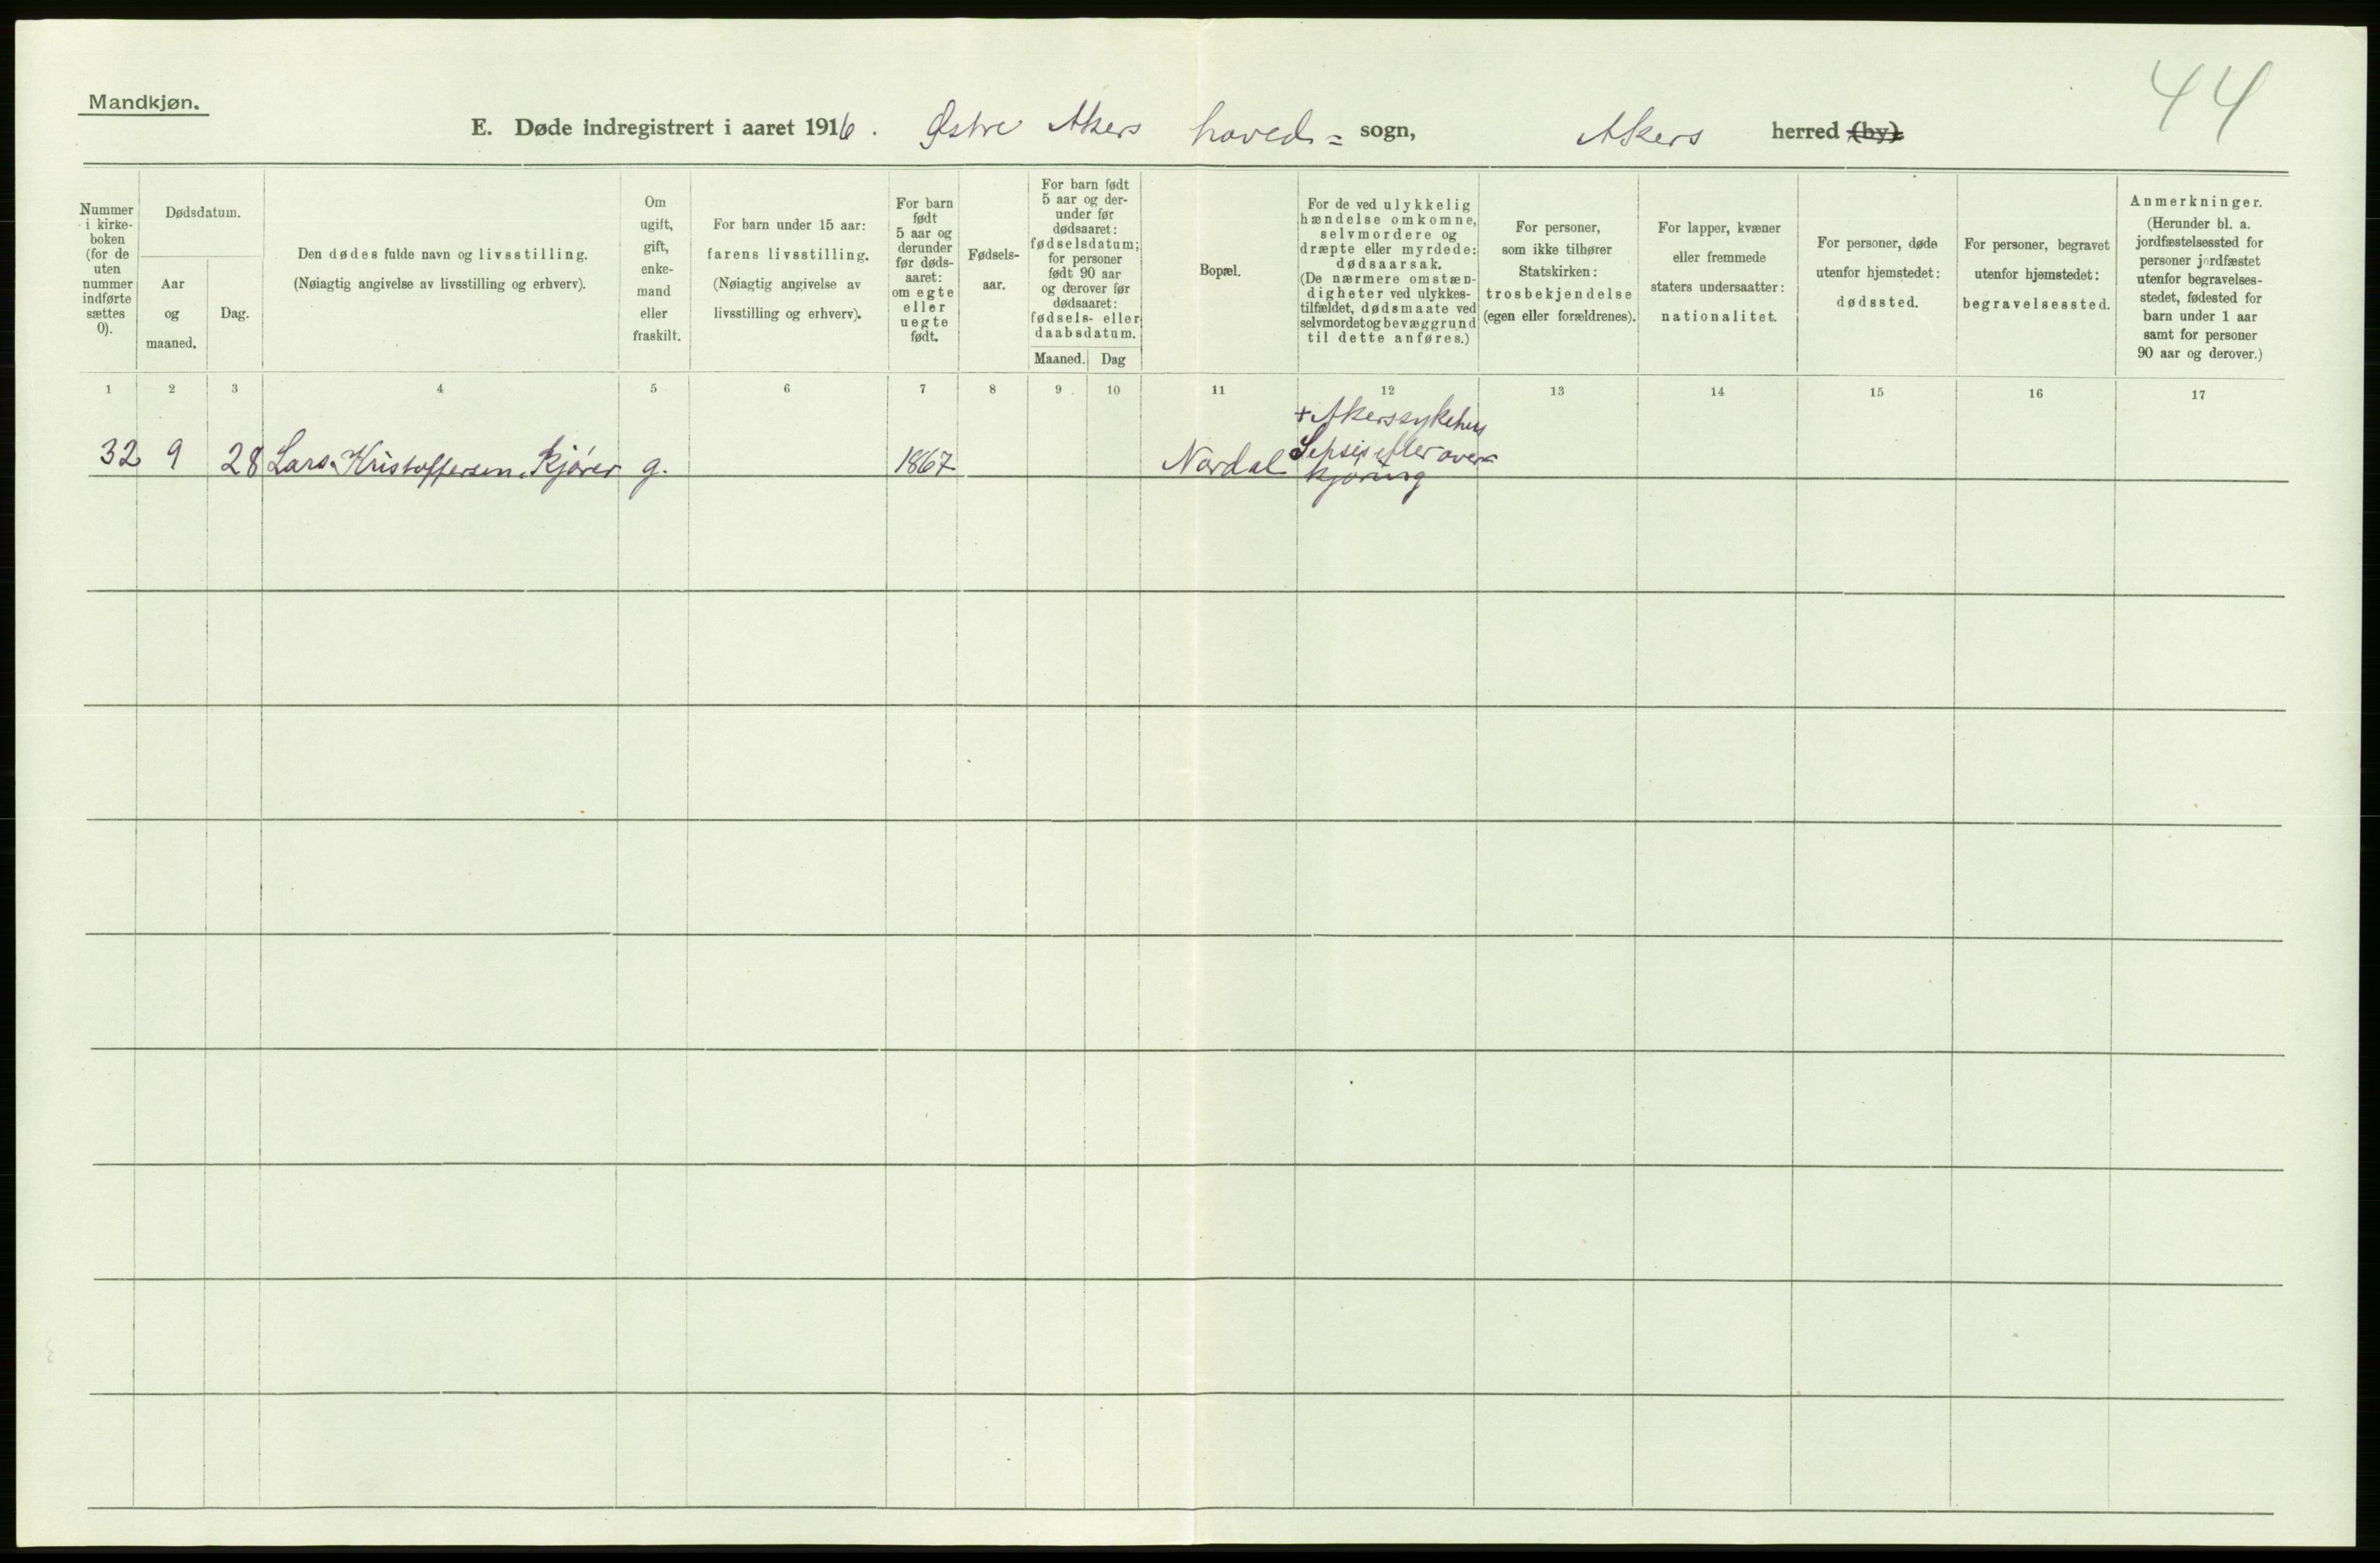 44
Mandkjøn.
E. Døde indregistrert i aaret 1916. Østre Akers hoved= sogn, Akers herred (by).
Nummer
i kirke-
boken
(for de
uten
nummer
indførte
sættes
0).
Dødsdatum.
Aar
og
maaned.
Dag.
Den dødes fulde navn og livsstilling.
(Nøiagtig angivelse av livsstilling og erhverv).
Om
ugift,
gift,
enke-
mand
eller
fraskilt.
For barn under 15 aar:
farens livsstilling.
(Nøiagtig angivelse av
livsstilling og erhverv).
For barn
født
5 aar og
derunder
før døds-
aaret:
om egte
eller
uegte
født.
Fødsels-
aar.
For barn født
5 aar og der-
under før
dødsaaret:
fødselsdatum;
for personer
født 90 aar
og derover før
dødsaaret:
fødsels- eller
daabsdatum.
Maaned.
Dag
Bopæl.
For de ved ulykkelig
hændelse omkomne,
selvmordere og
dræpte eller myrdede:
dødsaarsak.
(De nærmere omstæn-
digheter ved ulykkes-
tilfældet, dødsmaate ved
selvmordet og bevæggrund
til dette anføres.)
For personer,
som ikke tilhører
Statskirken:
trosbekjendelse
(egen eller forældrenes).
For lapper, kvæner
eller fremmede
staters undersaatter:
nationalitet.
For personer, døde
utenfor hjemstedet:
dødssted.
For personer, begravet
utenfor hjemstedet:
begravelsessted.
Anmerkninger.
(Herunder bl. a.
jordfæstelsessted for
personer jordfæstet
utenfor begravelses-
stedet, fødested for
barn under 1 aar
samt for personer
90 aar og derover.)
1 2 3 4 5 6 7 8 9 10 11 12 13 14 15 16 17
+ Akerssykehus
32 9 28 Lars Kristoffersen, Kjører g. 1867 Nordal Sepsis efter over=
kjøring